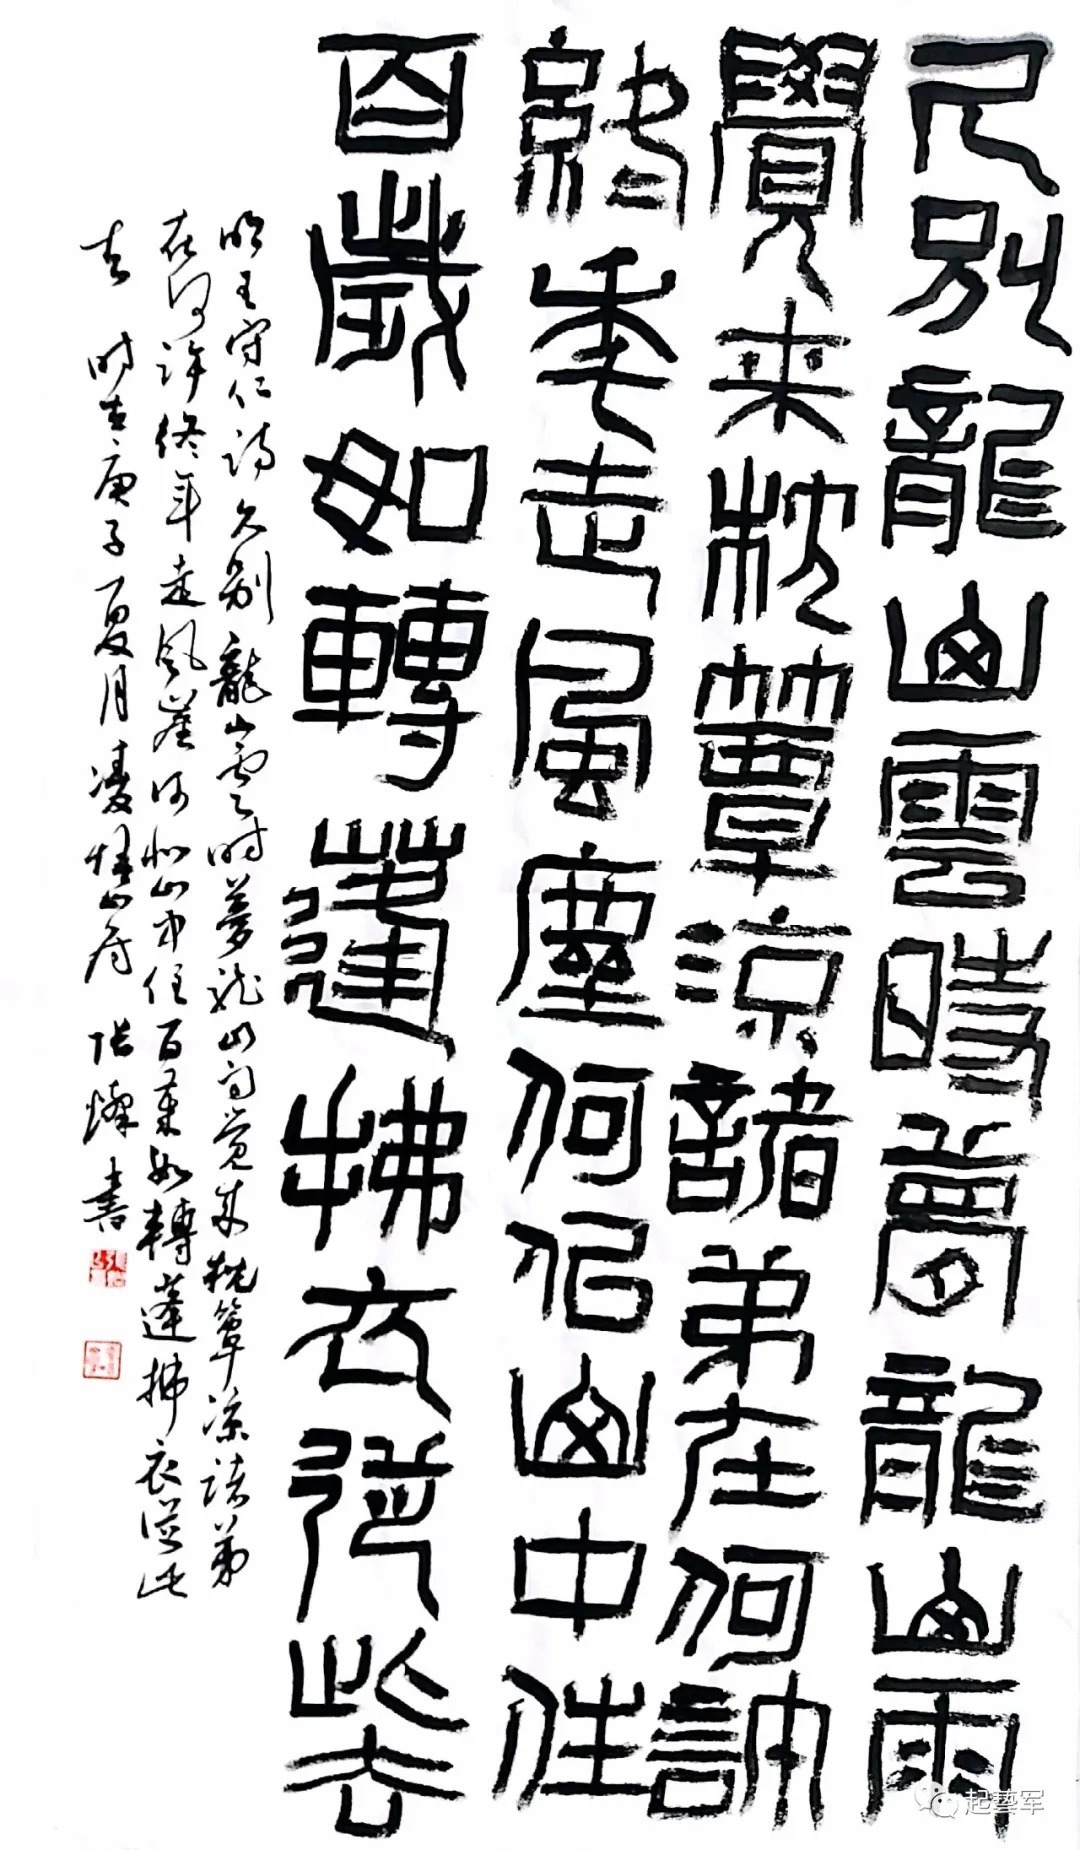 久別龍山雲時夢龍山雨
覺來枕簟涼諸弟在何許
終年走風塵何似山中住
百歲如轉蓬拂衣從此去
明王守仁詩久别龍山雲时夢龙山雨觉來枕簟凉诸弟
在何許终年走風塵何似山中住百歲如轉蓬拂衣從此
去 时在庚子夏月凌恒山房 张 書
起藝军